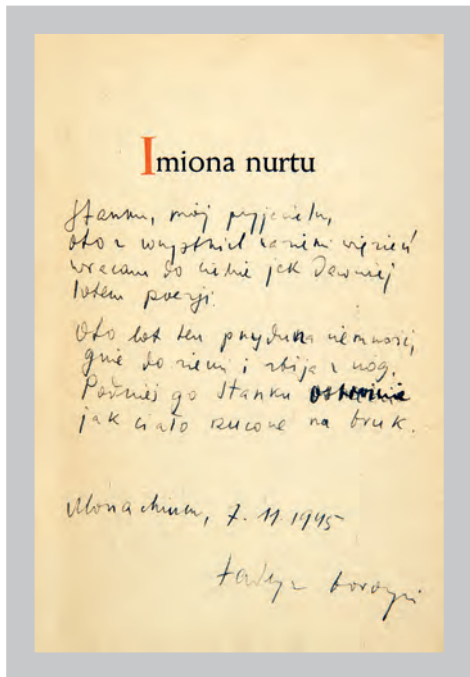 Imiona nurtu
Stanku, mój przyjacielu,
oto z wszystkich kamieni więzień
wracam do ciebie jak dawniej
lotem poezji.
Oto lot ten
gnie do ziemi i zbija z nóg.
Podnieś go Stanku ostrożnie
jak ciało rzucone na bruk.
Monachium, 7.11.1945
Tadeusz Borowski